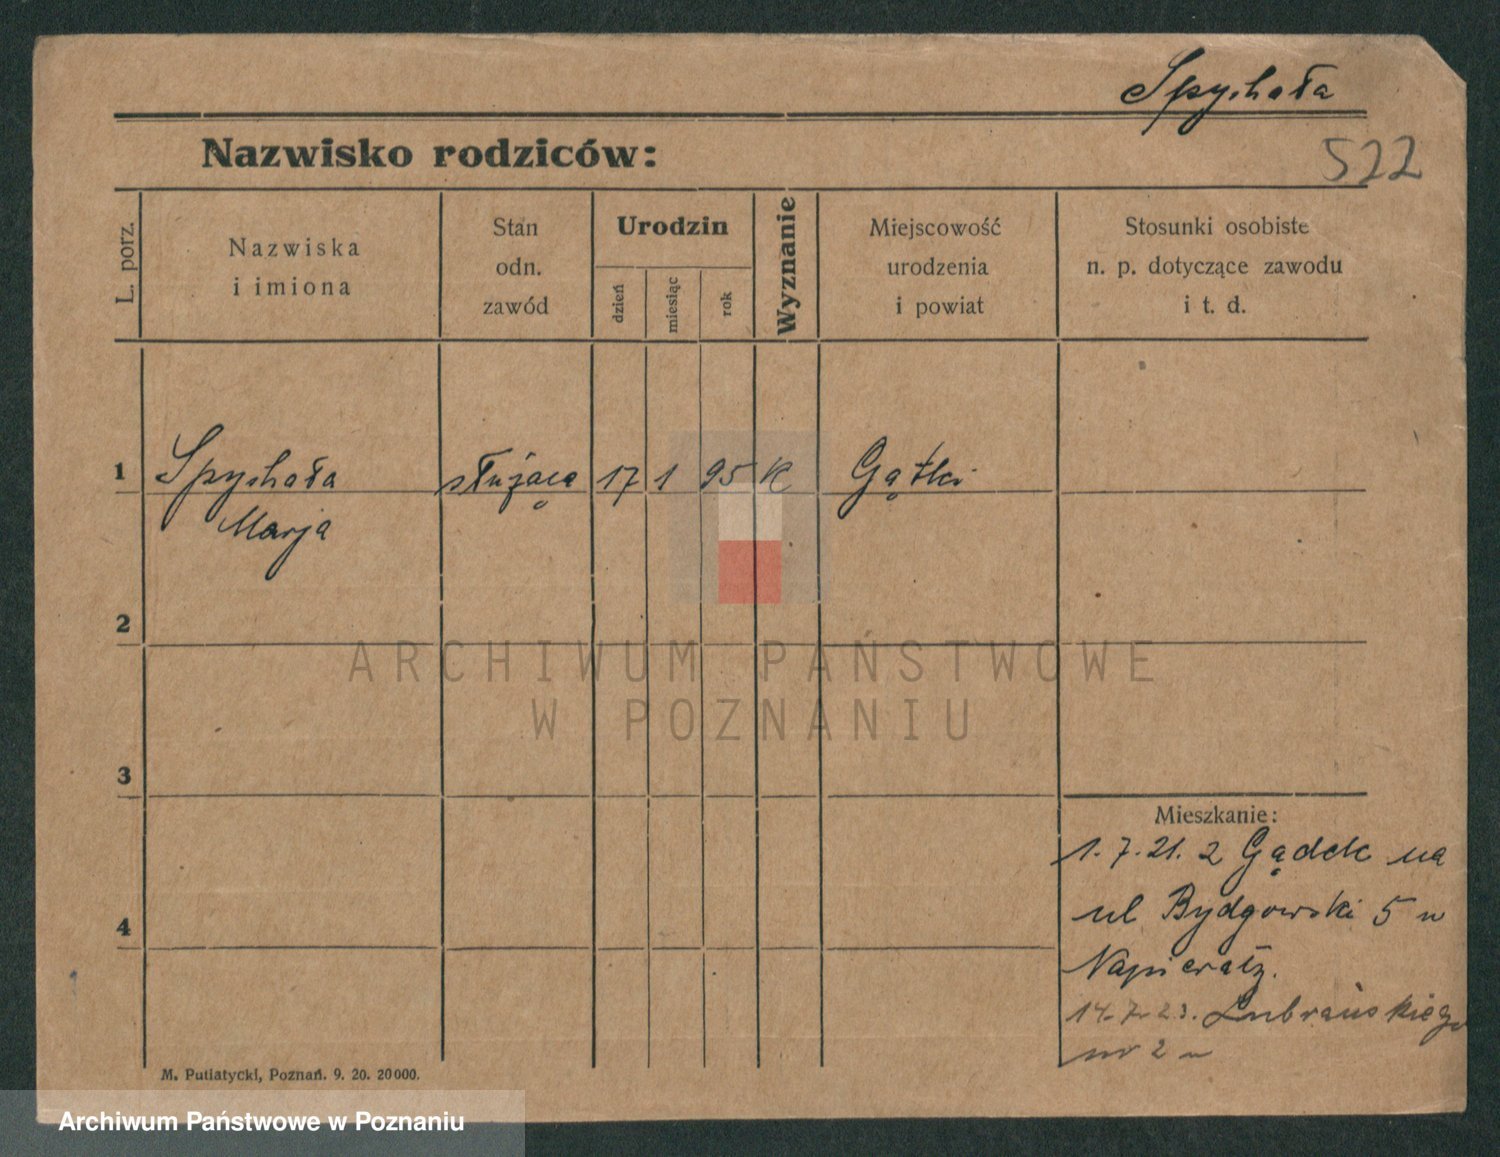 Spychała
522
Nazwisko rodziców:
L. porz.
Nazwiska
i imiona
Stan
odn.
zawód
Urodzin
dzień
miesiąc
rok
Wyznanie
Miejscowość
urodzenia
i powiat
Stosunki osobiste
n. p. dotyczące zawodu
i t. d.
1 Spychała służąca 17 1 95 K Gątki
Marja
2
ARCHIWUM PAŃSTWOWE
W POZNANIU
3
Mieszkanie:
1. 7. 21. z Gądek na
4
ul Bydgowski 5 u
14. 7. 23. Lubrańskiego
nr 2 u
M. Putiatycki, Poznań. 9. 20. 20000.
Archiwum Państwowe w Poznaniu